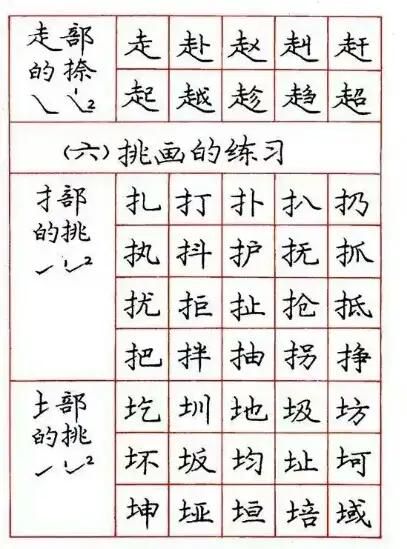 走部 走 赴 赵 赳 赶
的捺 起 越 趁 趋 超
1 2
(六)挑画的练习
扌部 扎 打 扑 扒 扔
的挑 执 抖 护 抚 抓
1 2
扰 拒 扯 抢 抵
把 拌 抽 拐 挣
土部 圪 圳 地 圾 坊
的挑 坏 坂 均 址 坷
1 2
坤 垭 垣 培 域